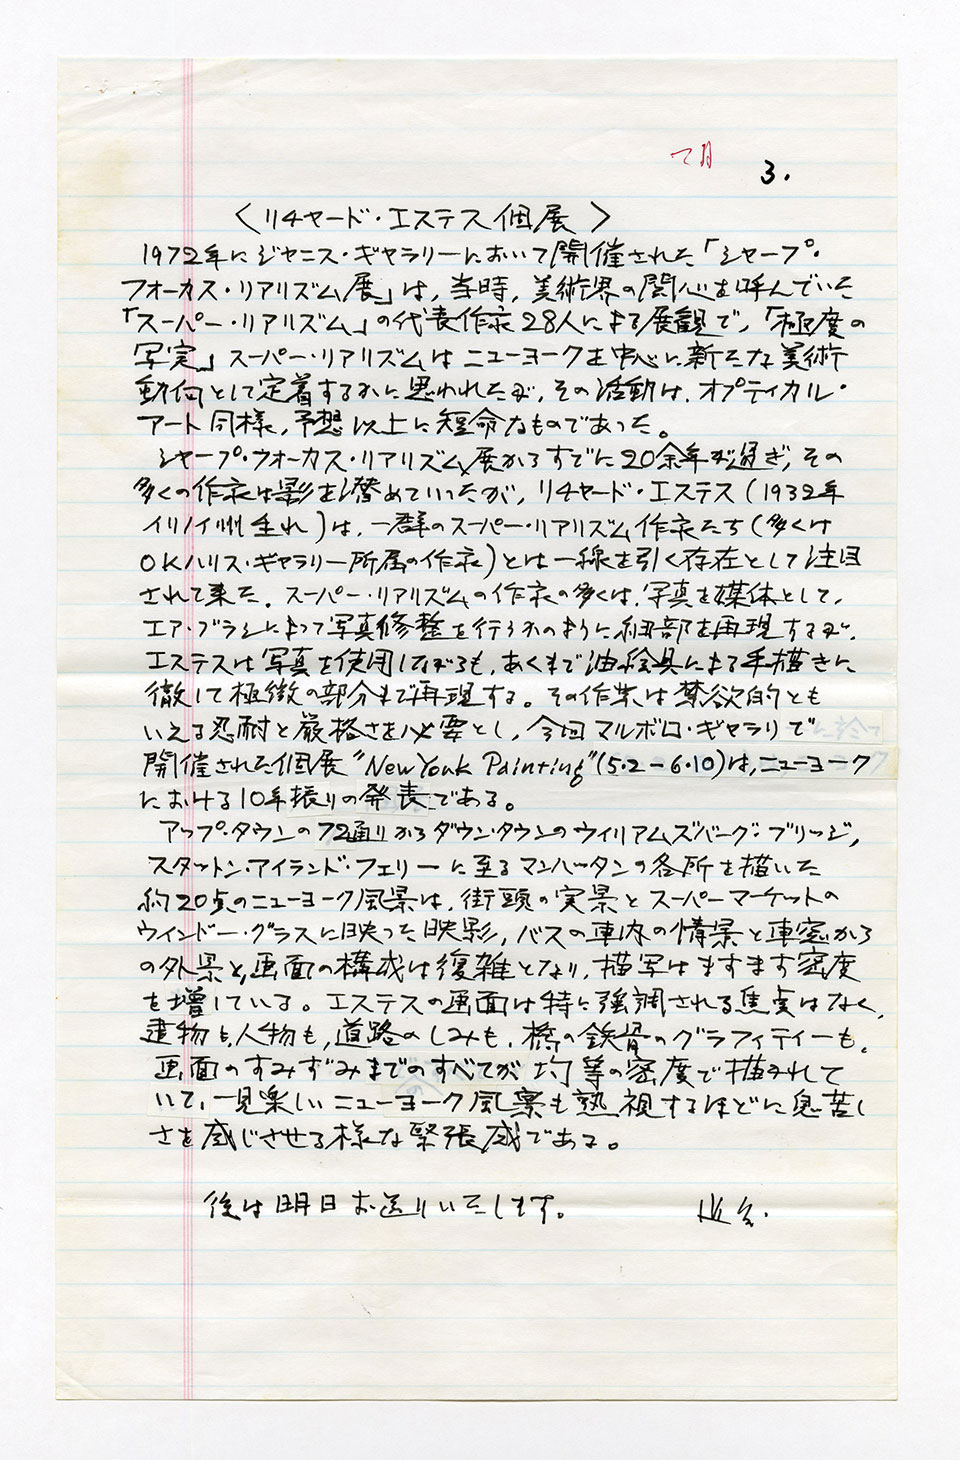 7月
3.
〈リチャード・エステス個展〉
1972年にジャニス・ギャラリーにおいて開催された「シャープ・
フォーカス・リアリズム展」は，当時，美術界の関心を呼んでいた
「スーパー・リアリズム」の代表作家28人による展観で，「極度の
写実」スーパー・リアリズムはニューヨークを中心に新たな美術
動向として定着するかに思われたが，その活動は，オプティカル・
アート同様，予想以上に短命なものであった。
シャープ・ウォーカス・リアリズム展からすでに20余年が過ぎ，その
多くの作家は影を潜めていったが，リチャード・エステス（1932年
イリノイ州生れ）は，一群のスーパー・リアリズム作家たち（多くは
OKハリス・ギャラリー所属の作家）とは一線を引く存在として注目
されて来た．スーパー・リアリズムの作家の多くは，写真を媒体として，
エア・ブラシによって写真修整を行うかのように細部を再現するが，
エステスは写真を使用しながらも，あくまで油絵具による手描きに
徹して極微の部分まで再現する。その作業は禁欲的とも
いえる忍耐と厳格さを必要とし，今回マルボロ・ギャラリで
開催された個展“New York Painting”(5.2-6.10)は，ニューヨーク
における10年振りの発表である。
アップ・タウンの72通りからダウン・タウンのウイリアムズバーグ・ブリッジ，
スタットン・アイランド・フェリーに至るマンハッタンの各所を描いた
約20点のニューヨーク風景は，街頭の実景とスーパーマーケットの
ウィンドー・グラスに映った映影，バスの車内の情景と車窓から
の外景と，画面の構成は復雑となり，描写はますます密度
を増している。エステスの画面は特に強調される焦点はなく，
建物も，人物も，道路のしみも，橋の鉄骨のグラフィティーも，
画面のすみずみまでのすべてが均等の密度で描かれて
いて，一見楽しいニューヨーク風景も熟視するほどに息苦し
さを感じさせる様な緊張感である。
後は明日お送りいたします。